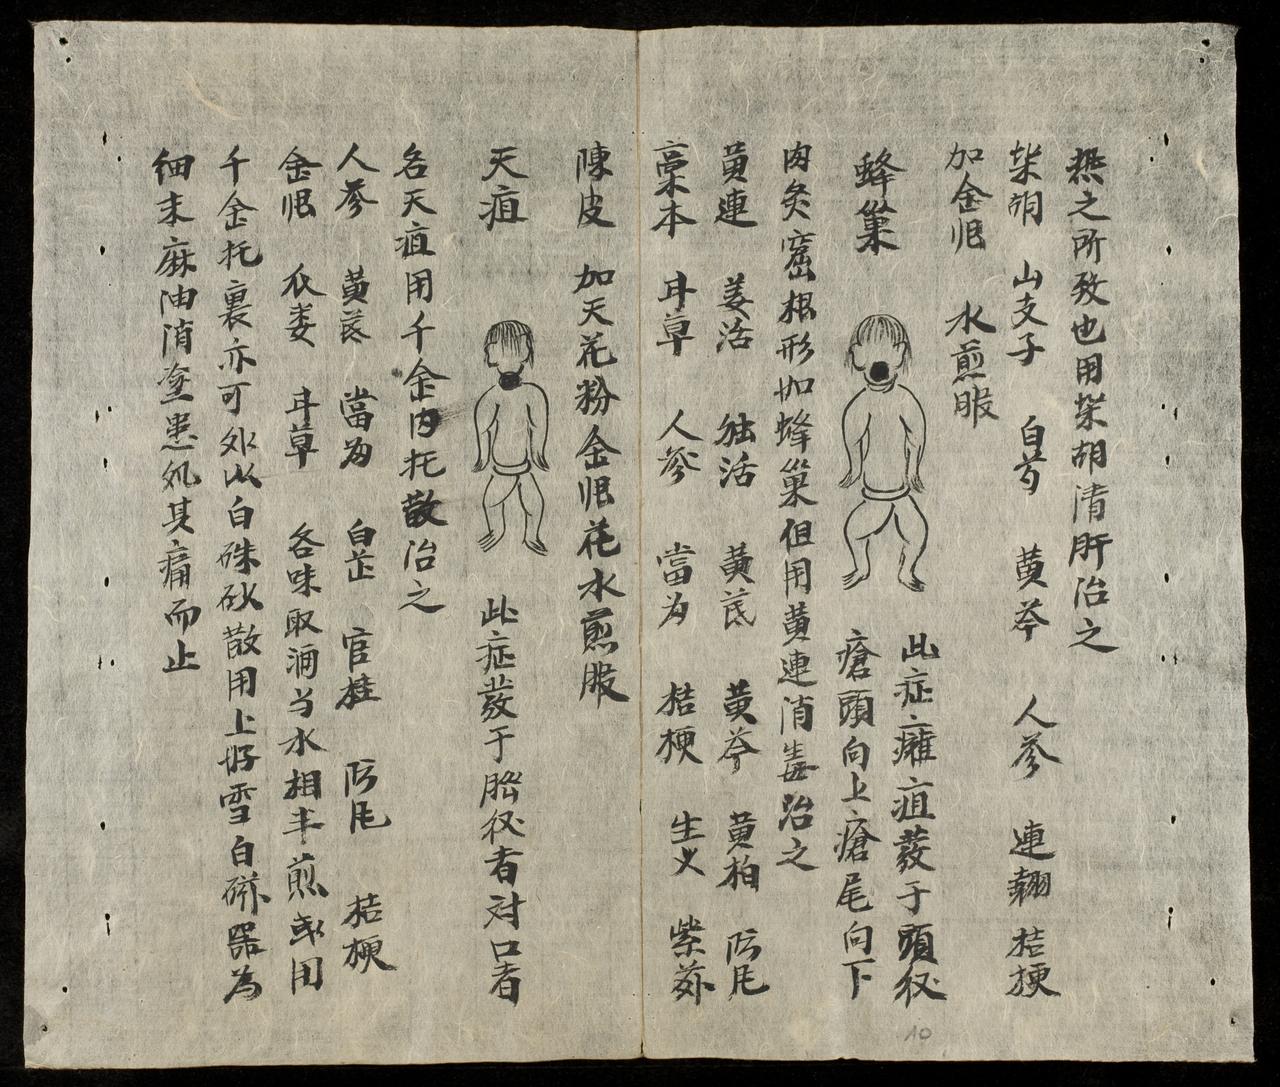 热之所致也用柴胡清肝治之
柴胡 山支子 白芍 黄芩 人參 連翹 桔梗
加金艮 水煎服
蜂巢
此症癰疽發于頭後
瘡頭向上瘡尾向下
肉灸窟根形如蜂巢但用黄連消毒治之
黄連 姜活 独活 黄芪 黄芩 黄柏 防凡
藁本 甘草 人參 當为 桔梗 生 紫
陳皮 加天花粉金艮花水煎服
天疽
此症發于腦後者对口者
名天疽用千金内托散治之
人參 黄芪 當为 白芷 官桂 防凡 桔梗
金艮 瓜蒌 甘草 各味取酒与水相半煎或用
千金托裏亦可外以白硃砂散用上好雪白磁器为
细末麻油消塗患处其痛而止
10